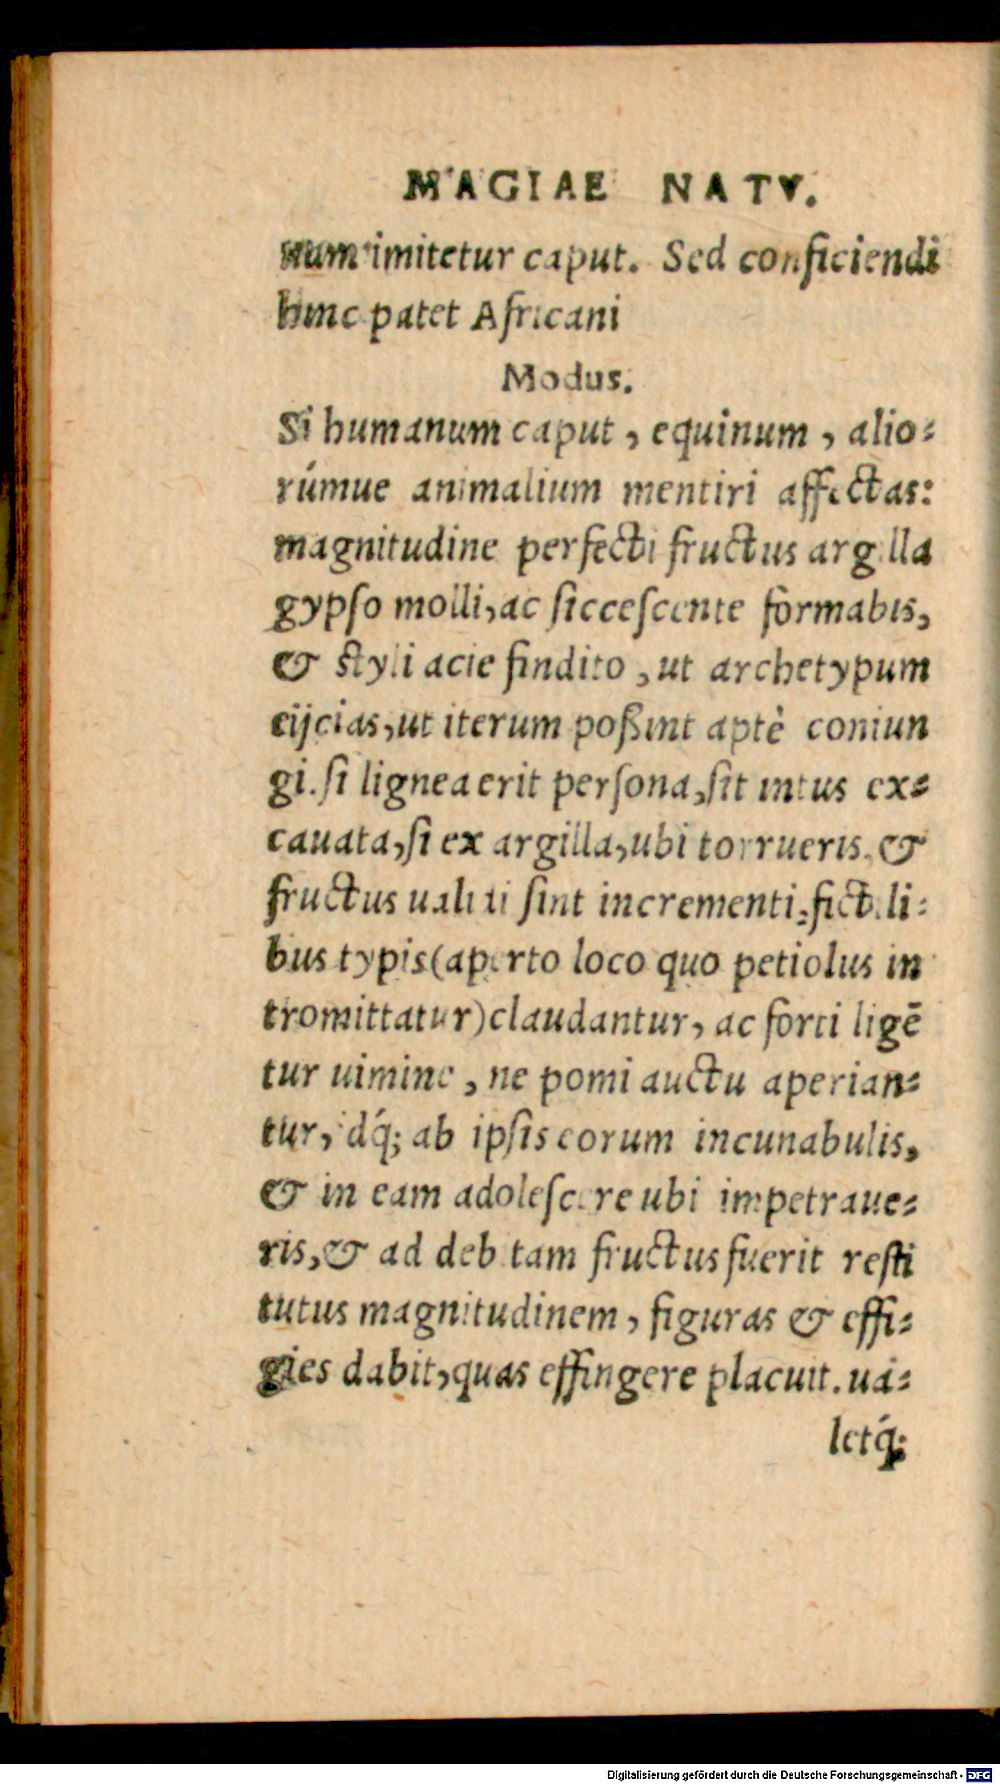 MAGIAE NATV.
num imitetur caput. Sed conficiendi
hinc patet Africani
Modus.
Si humanum caput, equinum, alio-
rúmue animalium mentiri affectas:
magnitudine perfecti fructus argilla
gypso molli, ac siccescente formabis,
& styli acie findito, ut archetypum
eijcias, ut iterum poßint aptè coniun
gi. si lignea erit persona, sit intus ex-
cauata, si ex argilla, ubi torrueris. &
fructus ualidi sint incrementi, fictili-
bus typis (aperto loco quo petiolus in
tromittatur) claudantur, ac forti ligē
tur uimine, ne pomi auctu aperian-
tur, idq́; ab ipsis eorum incunabulis,
& in eam adolescere ubi impetraue-
ris, & ad debitam fructus fuerit resti
tutus magnitudinem, figuras & effi-
gies dabit, quas effingere placuit. ua-
letq́;
Digitalisierung gefördert durch die Deutsche Forschungsgemeinschaft - DFG